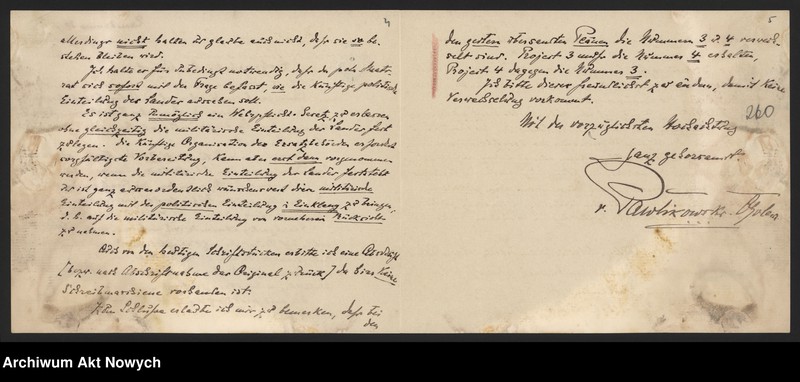 4
allerdings nicht halten. Ich glaube auch nicht, dass sie so be-
stehen bleiben wird.
Ich halte es für unbedingt notwendig, dass der poln. Staats-
rat sich sofort mit der Frage befasst, wie die künftige politische
Einteilung des Landes aussehen soll.
Es ist ganz unmöglich ein Wehrpflicht-Gesetz zu erlassen
ohne gleichzeitig die militärische Einteilung des Landes fest
zu legen. Die künftige Organisation der Ersatzbehörden erfordert
sorgfältigste Vorbereitung, kann aber erst dann vorgenommen
werden, wenn die militärische Einteilung des Landes feststeht.
Es ist ganz ausserordentlich wünschenswert diese militärische
Einteilung mit der politischen Einteilung in Einklang zu bringen,
d. h. auf die militärische Einteilung von vorneherein Rücksicht
zu nehmen.
Auch von den heutigen Schriftstücken erbitte ich eine Abschrift
[bezw. nach Abschriftnahme das Original zurück] da hier keine
Schreibmaschine vorhanden ist.
Zum Schlusse erlaube ich mir zu bemerken, dass bei
den
5
den gestern übersandten Plänen die Nummern 3 u. 4 verwech-
selt sind. Project 3 muss die Nummer 4 erhalten,
Project 4 dagegen die Nummer 3.
Ich bitte dieses freundlichst zu ändern, damit keine
Verwechslung vorkommt.
260
Mit der vorzüglichsten Hochachtung
ganz gehorsamst
v. Pawlikowski-Cholewa
Archiwum Akt Nowych